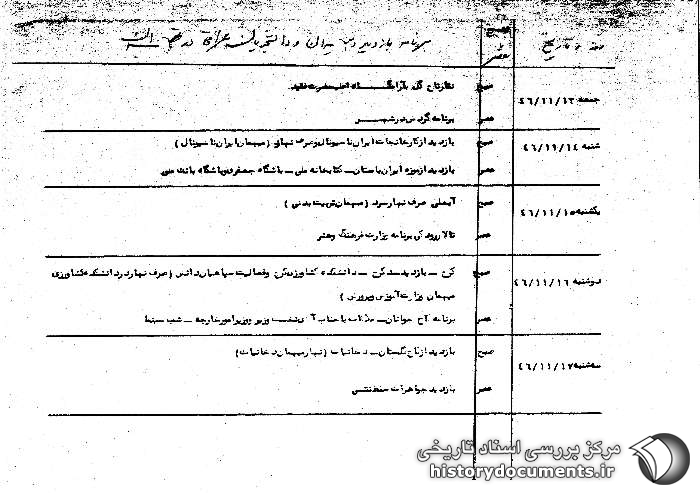 برنامه بازدید و دانشجویان عراقی در
صبح
عصر
تاریخ
جمعه ۴۶/۱۱/۱۳
صبح
نثار تاج گل بآرامگاه اعلیحضرت فقید
عصر
برنامه گردش در شهر
شنبه ۴۶/۱۱/۱۴
صبح
بازدید از کارخانجات ایران ناسیونال و صرف نهار ( میهمان ایران ناسیونال )
عصر
بازدید از موزه ایران باستان ـ کتابخانه ملی ـ باشگاه جعفری و باشگاه بانک ملی
یکشنبه ۴۶/۱۱/۱۵
صبح
آبعلی صرف نهار سرد ( میهمان تربیت بدنی )
عصر
تالار رودکی برنامه وزارت فرهنگ و هنر
دوشنبه ۴۶/۱۱/۱۶
صبح
کرج ـ بازدید سد کرج ـ دانشکده کشاورزی کرج و فعالیت سپاهیان دانش ( صرف نهار در دانشکده کشاورزی
میهمان وزارت آموزش و پرورش )
عصر
برنامه کاخ جوانان ـ ملاقات با جناب آقای نخست وزیر و وزیر امور خارجه ـ شب سینما
سه شنبه ۴۶/۱۱/۱۷
صبح
بازدید از کاخ گلستان ـ دخانیات ( نهار میهمان دخانیات )
عصر
بازدید جواهرات سلطنتی
مرکز بررسی اسناد تاریخی
historydocuments.ir